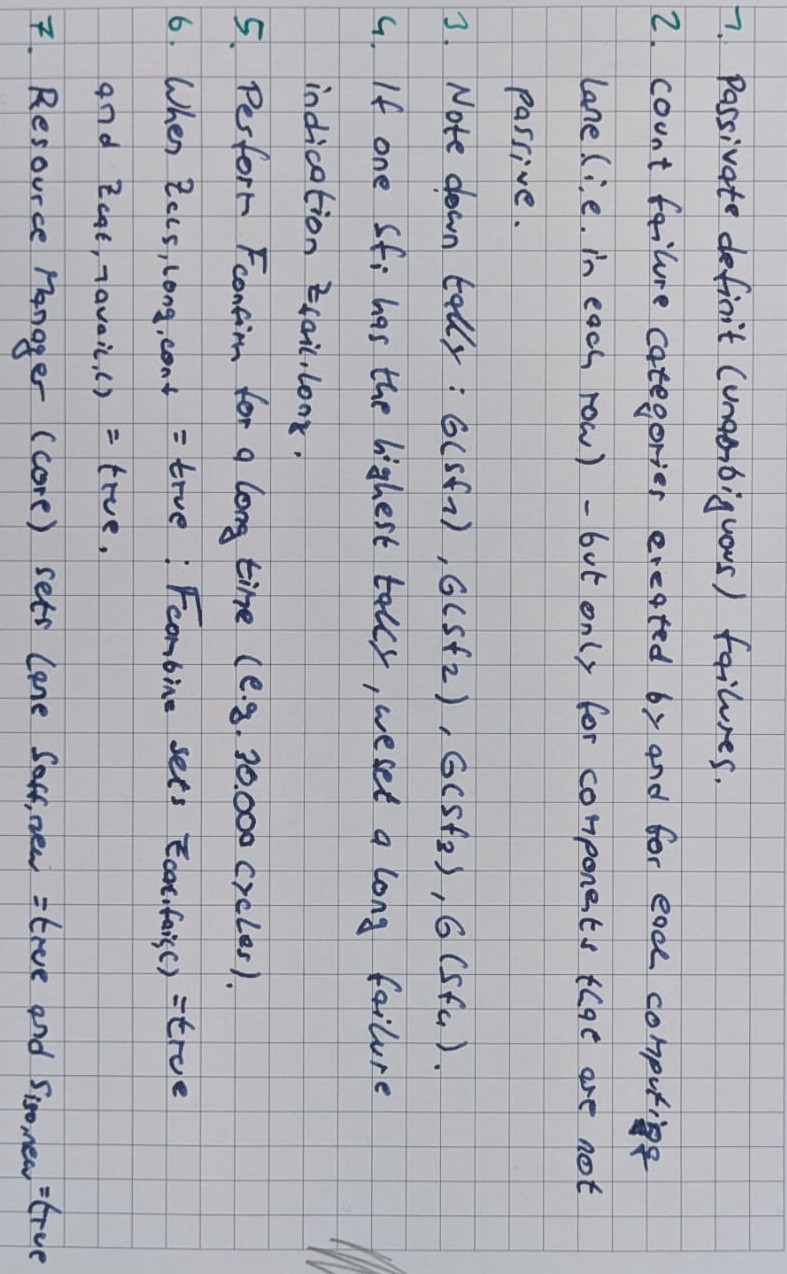 1. Passivate definit (unambiguous) failures.
2. count failure categories created by and for each computing
lane (i.e. in each row) - but only for components that are not
passive.
3. Note down tally: G(sf1), G(sf2), G(sf3), G(sf4).
4. If one sfi has the highest tally, we set a long failure
indication zfail,long.
5. Perform Fconfirm for a long time (e.g. 30.000 cycles).
6. When zcls,long,cont = true : Fcombine sets zcat,fail,() = true
and zcat,¬avail,() = true.
7. Resource Manager (core) sets lane soff,new = true and siso,new = true